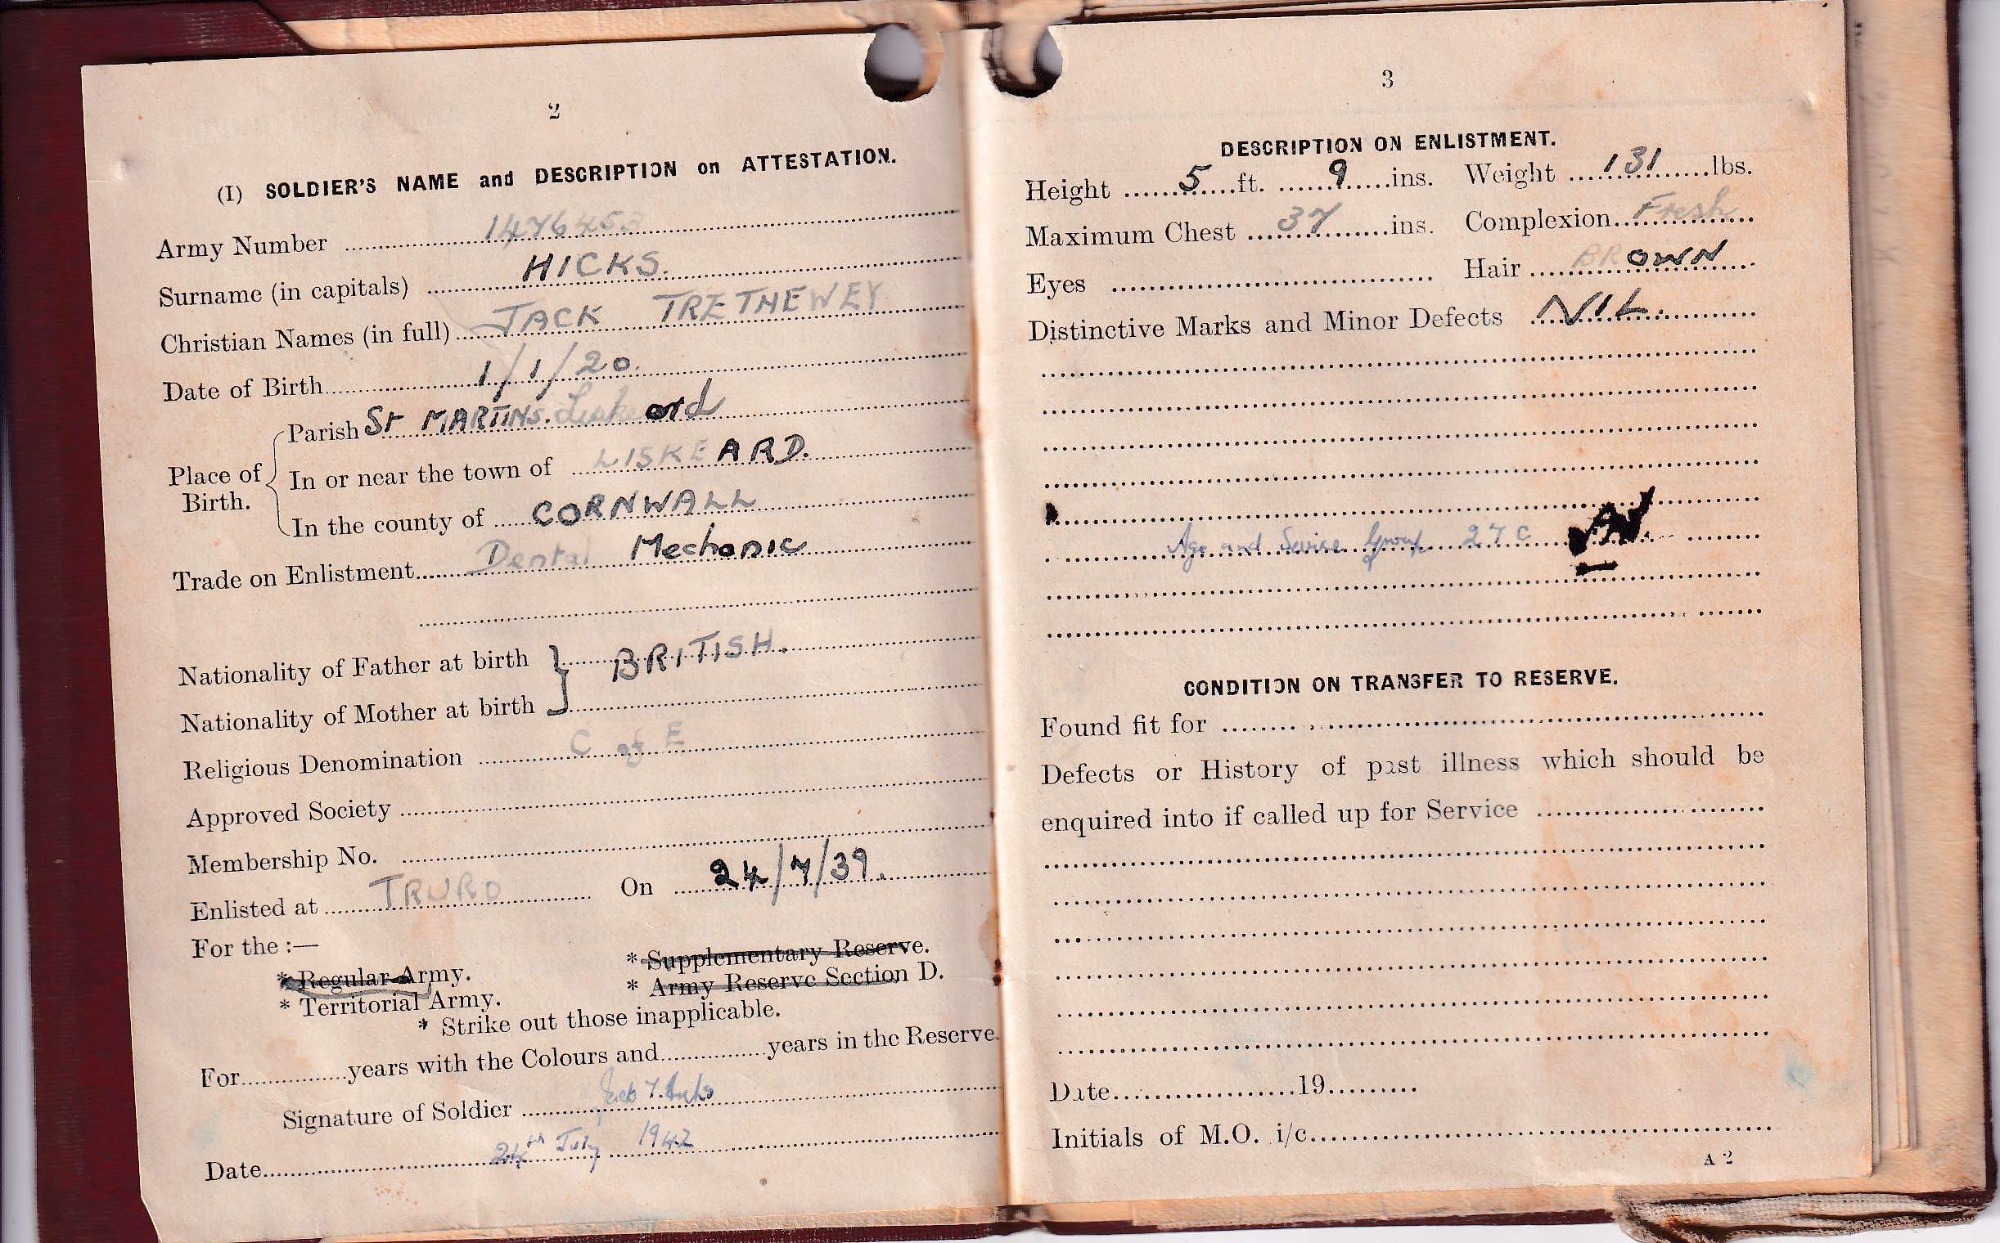 2
(I) SOLDIER'S NAME and DESCRIPTION on ATTESTATION.
Army Number 1476453
Surname (in capitals) HICKS.
Christian Names (in full) JACK TRETHEWEY
Date of Birth 1/1/20.
Place of Birth. Parish St MARTINS. Liskeard
In or near the town of LISKEARD.
In the county of CORNWALL
Trade on Enlistment Dental Mechanic
Nationality of Father at birth } BRITISH.
Nationality of Mother at birth
Religious Denomination C of E
Approved Society
Membership No.
Enlisted at TRURO On 24/7/39.
For the :—
* Regular Army. * Supplementary Reserve.
* Territorial Army. * Army Reserve Section D.
* Strike out those inapplicable.
For years with the Colours and years in the Reserve.
Signature of Soldier Jack T. Hicks
Date 24th July 1942
3
DESCRIPTION ON ENLISTMENT.
Height 5 ft. 9 ins. Weight 131 lbs.
Maximum Chest 37 ins. Complexion Fresh
Eyes Hair BROWN
Distinctive Marks and Minor Defects NIL.
Age and Service Group 27 C
CONDITION ON TRANSFER TO RESERVE.
Found fit for
Defects or History of past illness which should be
enquired into if called up for Service
Date 19
Initials of M.O. i/c
A 2